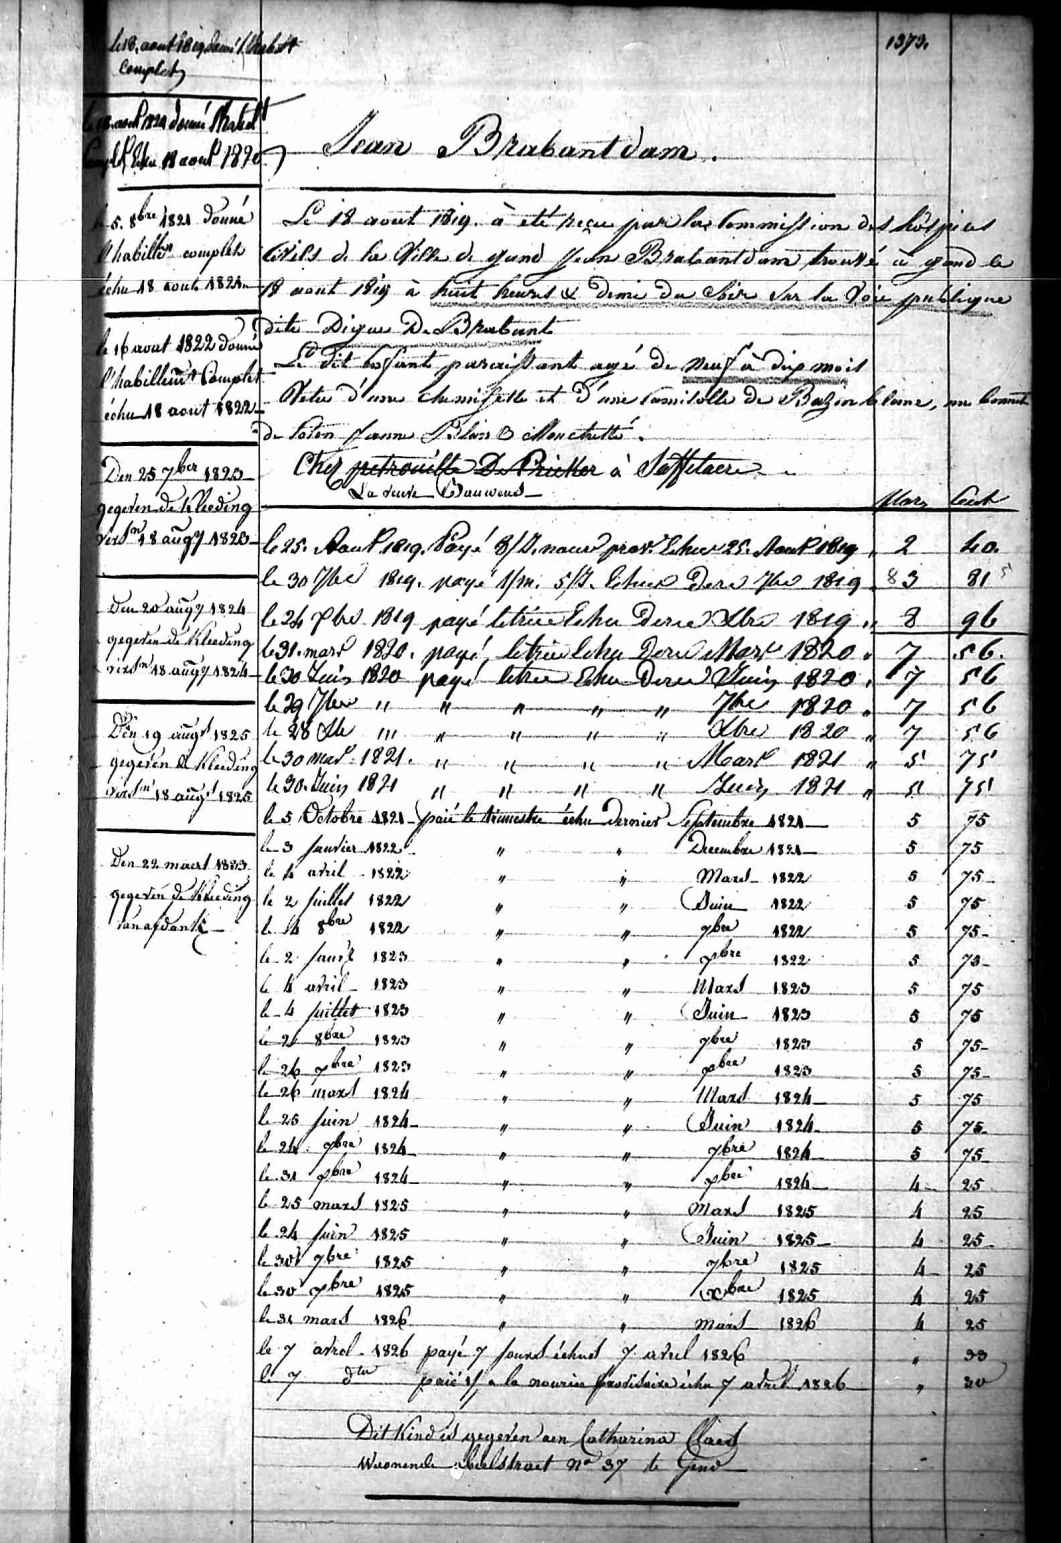 le 18. aout 1819 donné l'habillt
complet
le 18. aout 1820 donné l'habillt
Complet Echu 18 aout 1820
le 5. 8bre 1821 donné
l'habillmt complet
échu 18 aout 1821
le 16 aout 1822 donné
l'habillemt Complet
échu 18 aout 1822
Den 25 7ber 1823
gegeven de kleeding
versn 18 augt 1823
Den 20 augt 1824
gegeven de kleeding
versn 18 augt 1824
Den 19 augt 1825
gegeven de kleeding
versn 18 augt 1825
Den 22 maert
gegeven de kleeding
van afdank
1373.
Jean Brabantdam.
Le 18 aout 1819. à été reçu par la Commission des hospices
Civils de la Ville de gand Jean Brabantdam trouvé à gand le
18 aout 1819 à huit heures & demi du Soir Sur la Voie publique
dite Digue De Brabant
Le dit Enfant paraissant agé de neuf à dix mois
Vetu d'une chemisette et d'une Camisolle de Bazin blanc, un bonnet
de Coton Jaune Blan & Mouchetté.
Chez petronille De Pricker à Saffelaere
La veuve Bauwens
flor. Cent
le 25. Aout 1819. Payé 8/J. nour prov. Echu 25. Aout 1819 " 2 40.
le 30 7bre 1819. payé 1/m. 5/J. Echu Dere 7bre 1819 " 3 81
le 24 xbre 1819 payé letrie Echu Dere Xbre 1819 " 8 96
le 31. mars 1820. payé, letrie Echu Dere Mars 1820 " 7 56.
le 30 Juin 1820 payé letrie Echu Dere Juin 1820 " 7 56
le 29 7bre " " " " " 7bre 1820 " 7 56
le 28 Xbre " " " " " Xbre 1820 " 7 56
le 30 mars 1821. " " " " Mars 1821 " 5 75
le 30. Juin 1821 " " " " Juin 1821 " 5 75
le 5 Octobre 1821 payé le trimestre échu dernier Septembre 1821 5 75
le 3 janvier 1822 " " Decembre 1821 5 75
le 4 avril 1822 " " Mars 1822 5 75
le 2 juillet 1822 " " Juin 1822 5 75
le 4 8bre 1822 " " 7bre 1822 5 75
le 2 janv. 1823 " " xbre 1822 5 75
le 4 avril 1823 " " Mars 1823 5 75
le 4 juillet 1823 " " Juin 1823 5 75
le 2 8bre 1823 " " 7bre 1823 5 75
le 26 xbre 1823 " " xbre 1823 5 75
le 26 mars 1824 " " Mars 1824 5 75
le 25 juin 1824 " " Juin 1824 5 75
le 24 7bre 1824 " " 7bre 1824 5 75
le 31 xbre 1824 " " xbre 1824 4 25
le 25 mars 1825 " " Mars 1825 4 25
le 24 juin 1825 " " Juin 1825 4 25
le 30 7bre 1825 " " 7bre 1825 4 25
le 30 xbre 1825 " " Xbre 1825 4 25
le 31 mars 1826 " " mars 1826 4 25
le 7 avril 1826 payé 7 jours échus 7 avril 1826 " 33
le 7 dto payé 1/J a la nourice provisoire échu 7 avril 1826 " 30
Dit Kind is gegeven aen Catharina Claes
Woonende abeelstraet No 37 te Gend